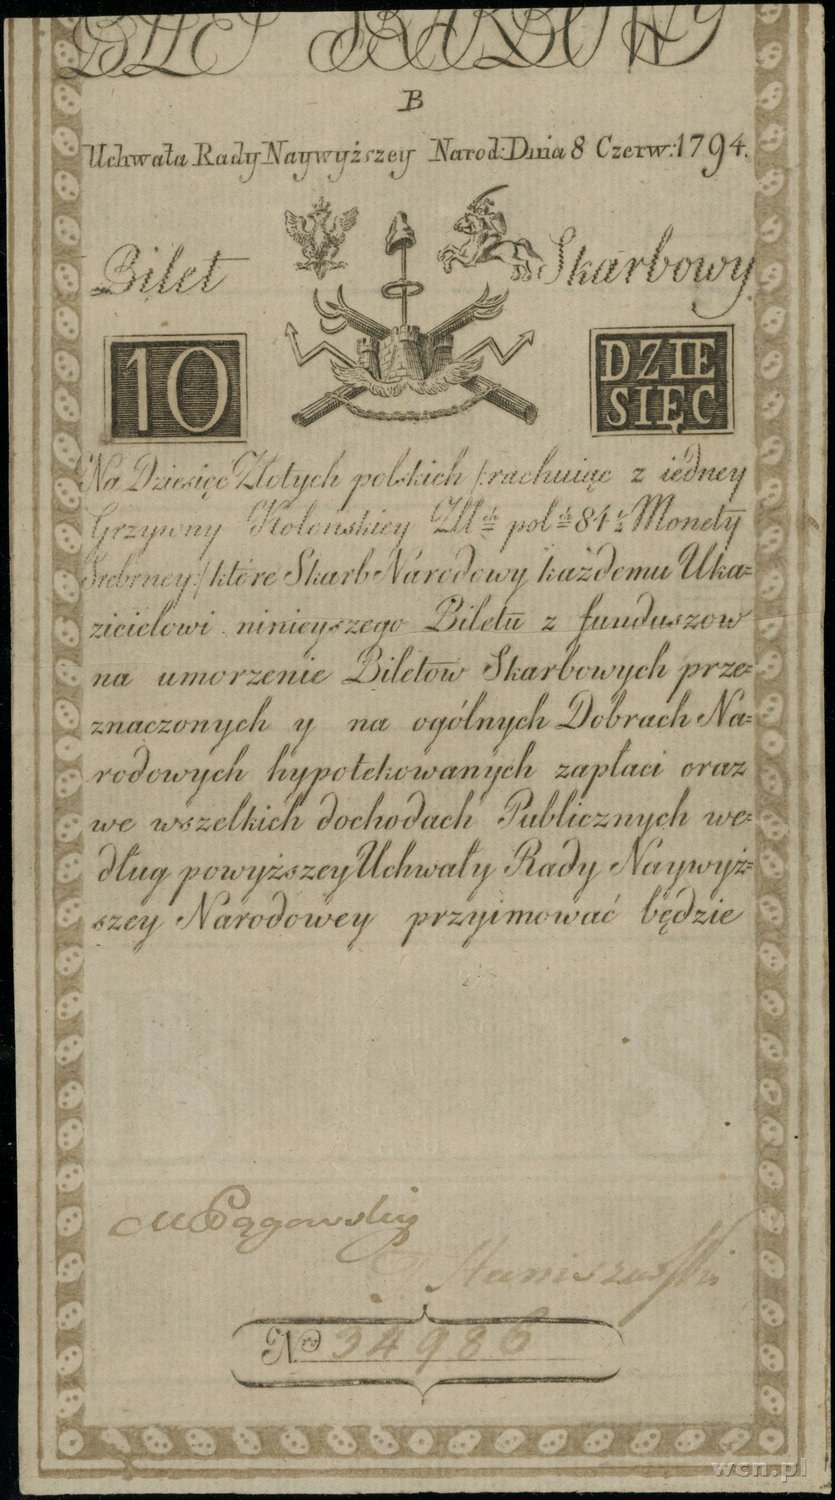 BILET SKARBOWY
B
Uchwała Rady Naywyższey Narod: Dnia 8 Czerw: 1794.
Bilet Skarbowy
10 DZIE
SIĘC
Na Dziesięc Złotych polskich /: rachuiąc z iedney
Grzywny Kolonskiey Zll.ch pol.ch 84½ Monety
Srebrney :/ które Skarb Narodowy każdemu Uka=
zicielowi ninieyszego Biletu z funduszow
na umorzenie Biletow Skarbowych prze=
znaczonych y na ogólnych Dobrach Na=
rodowych hypotekowanych zapłaci oraz
we wszelkich dochodach Publicznych we=
dług powyższey Uchwały Rady Naywyż=
szey Narodowey przyimować będzie
B S
M Pągowski
Staniszewski
No 34986
wcn.pl